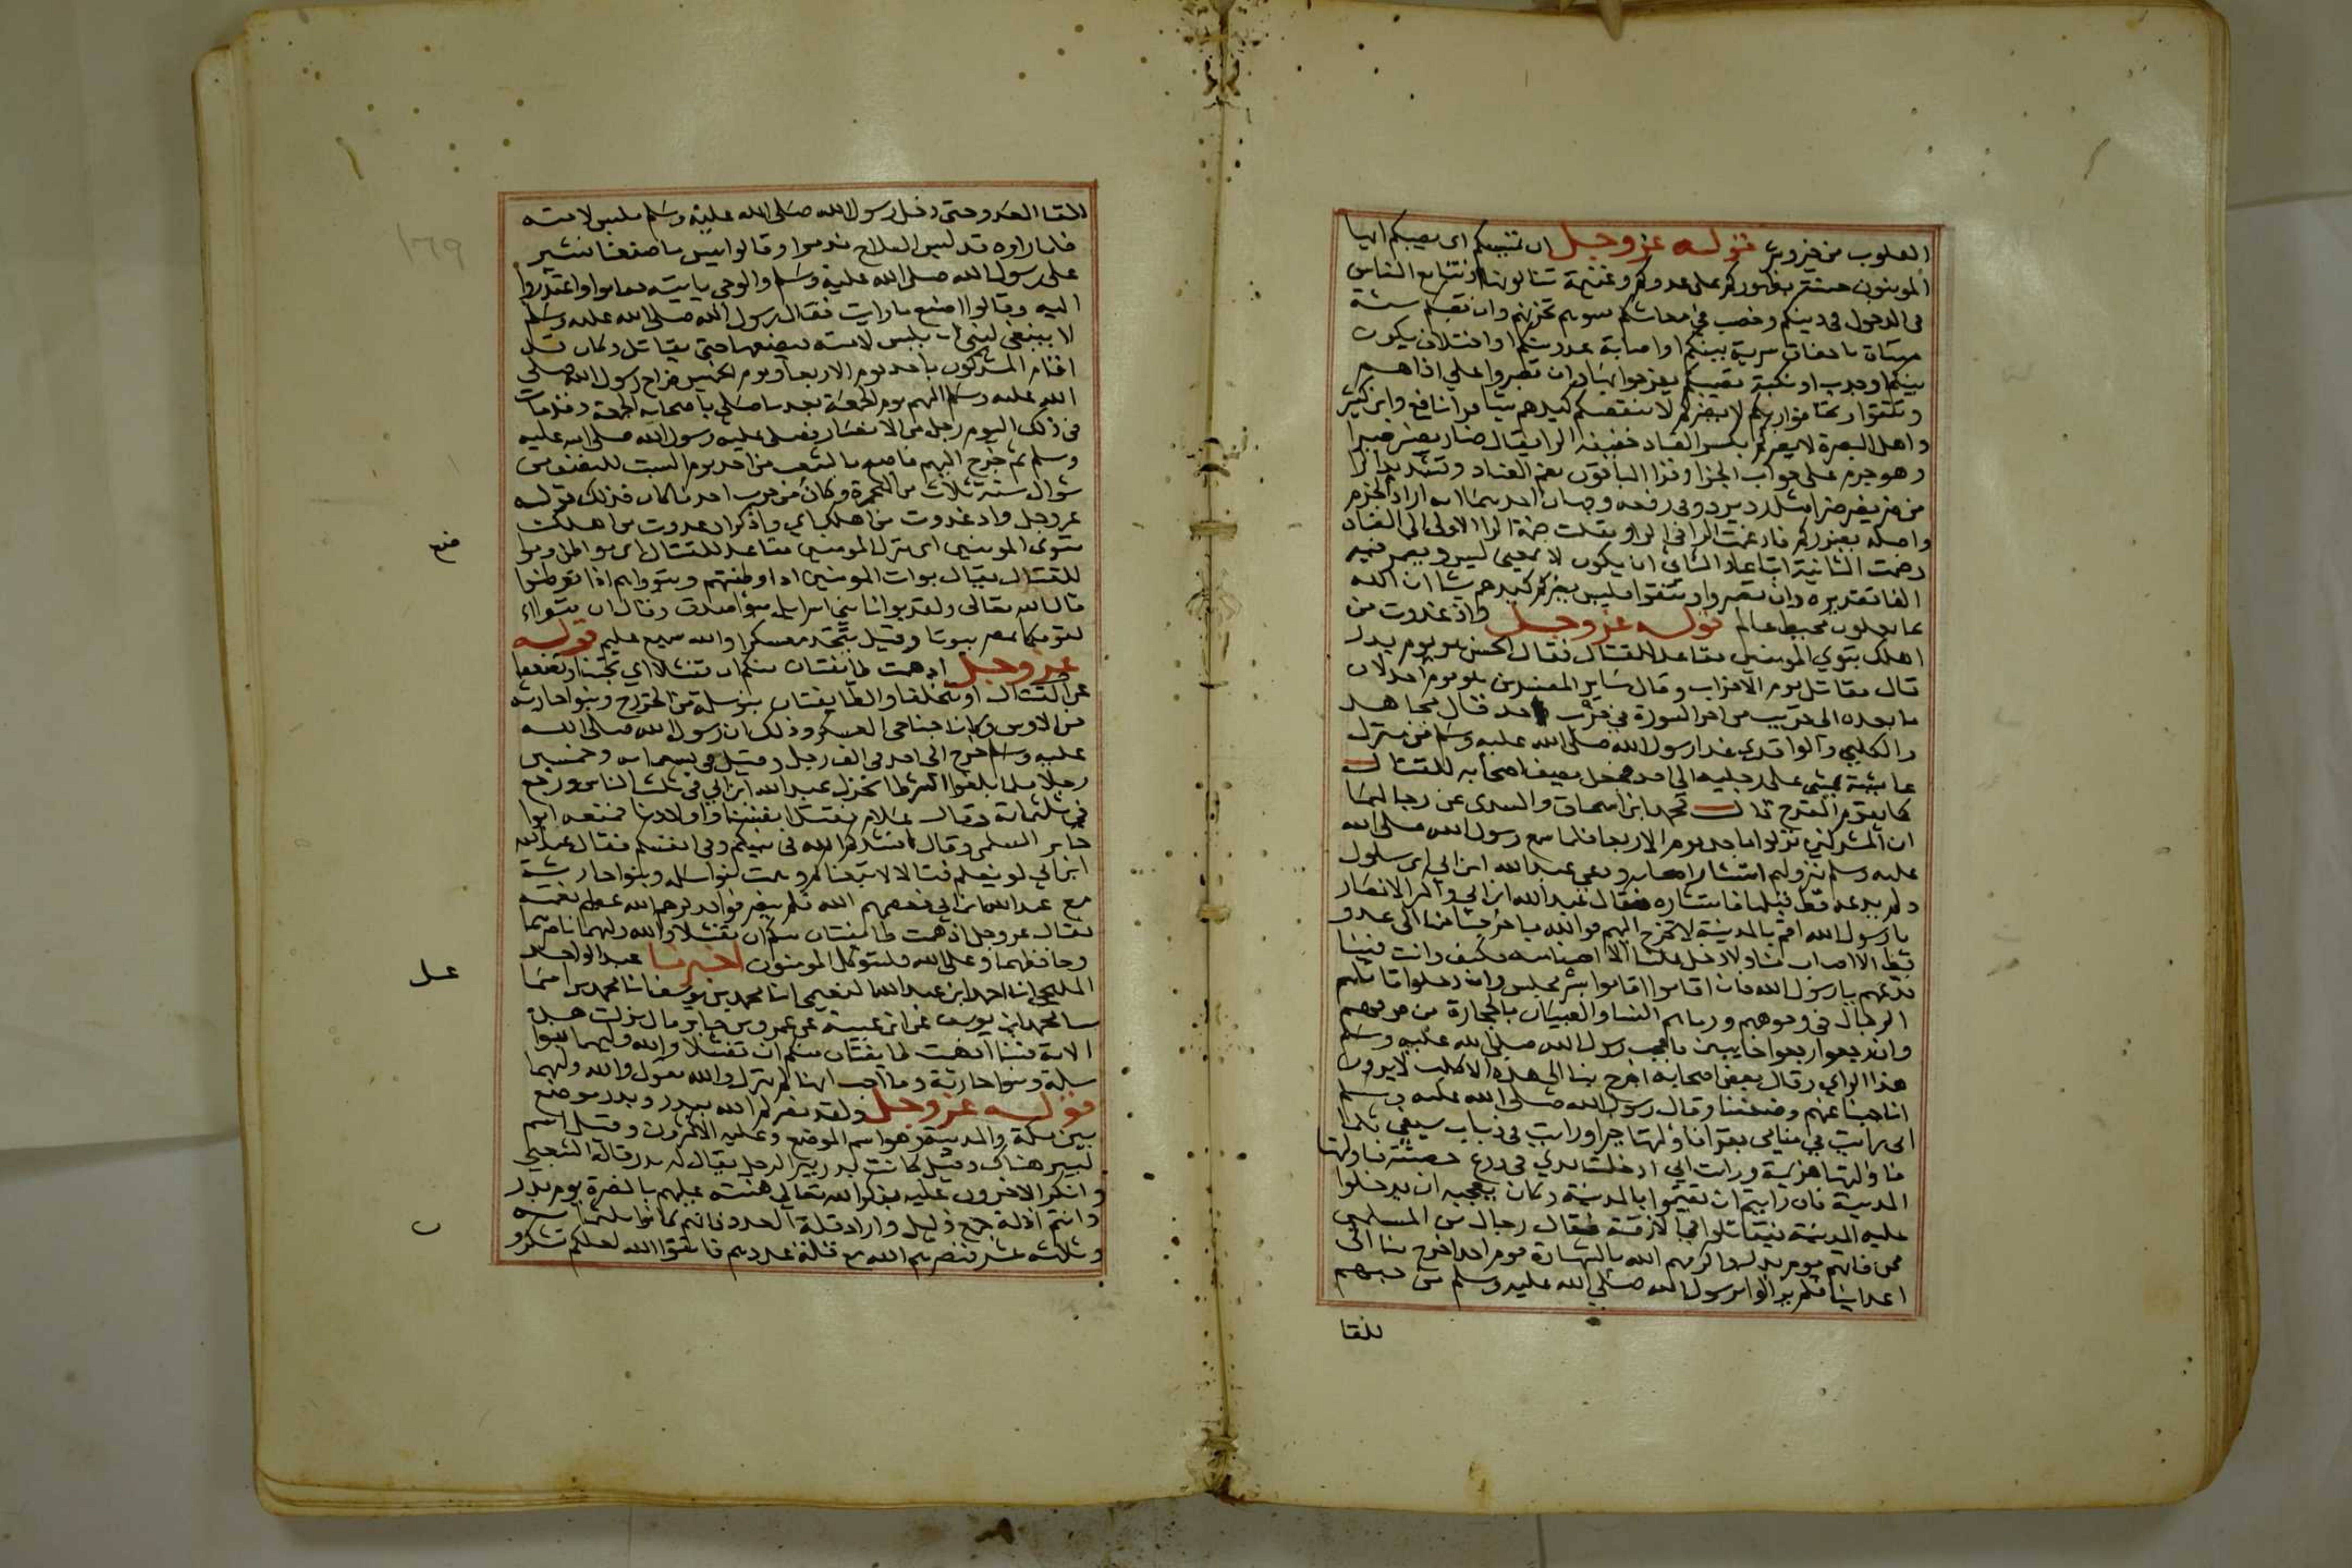 القلوب من خير وشر قوله عز وجل ان تمسسكم اى يصيبكم ايها
المومنون حسنة بظهوركم على عدوكم وغنيمة تنالونها وتتابع الناس
فى الدخول فى دينكم وخصب في معاشكم تسوهم تحزنهم وان تصبكم سئة
باخفاق سرية بينكم او اصابة عدو منكم او اختلاف يكون
بينكم او جدب او نكبة تصيبكم يفرحوا بها وان تصبروا على اذاهم
وتتقوا وتخافوا ربكم لا يضركم لا ينقصكم كيدهم شيا قرا نافع وابن كثير
واهل البصرة لا يضركم بكسر الضاد خفيفه الرا يقال ضار يضير ضيرا
وهو جزم على جواب الجزا وقرا الباقون بضم الضاد وتشديد الرا
من ضر يضر ضرا مثل رد يرد وفى رفعه وجهان احدهما انه اراد الجزم
واصله يضرركم فادغمت الرا في الرا ونقلت ضمة الرا الاولى الى الضاد
وضمت الثانية اتباعا والثاني ان يكون لا بمعنى ليس ويضمر فيه
الفا تقديره وان تصبروا وتتقوا فليس يضركم كيدهم شيا ان الله
بما يعملون محيط عالم قوله عز وجل واذ غدوت من
اهلك تبوي المومنين مقاعد للقتال فقال الحسن هو يوم بدر
قال مقاتل يوم الاحزاب وقال ساير المفسرين هو يوم احد لان
ما بعده الى قريب من اخر السورة في حرب احد قال مجاهد
والكلبي والواقدي غدا رسول الله صلى الله عليه وسلم من منزل
عايشة يمشي على رجليه الى احد فجعل يصف اصحابه للقتال
كما يقوم القدح قال محمد ابن اسحاق والسدى عن رجالهما
ان المشركين نزلوا باحد يوم الاربعا فلما سمع رسول الله صلى الله
عليه وسلم بنزولهم استشار اصحابه ودعى عبد الله ابن ابي ابن سلول
ولم يدعه قط قبلها فاستشاره فقال عبد الله ابن ابي واكثر الانصار
يا رسول الله اقم بالمدينة لا تخرج اليهم فوالله ما خرجنا منها الى عدو
قط الا اصاب منا ولا دخل علينا الا اصبنا منه فكيف وانت فينا
فدعهم يا رسول الله فان اقاموا اقاموا بشر مجلس وان دخلوا قاتلهم
الرجال فى وجوههم ورماهم النسا والصبيان بالحجارة من فوقهم
وان رجعوا رجعوا خايبين فاعجب رسول الله صلى الله عليه وسلم
هذا الراي وقال بعض اصحابه اخرج بنا الى هذه الاكلب لا يرون
انا جبنا عنهم وضعفنا وقال رسول الله صلى الله عليه وسلم
انى رايت في منامي بقرا فاولتها خيرا ورايت فى ذباب سيفي ثلما
فاولتها هزيمة ورايت اني ادخلت يدي فى درع حصينة فاولتها
المدينة فان رايتم ان تقيموا بالمدينة وكان يعجبه ان يدخلوا
عليه المدينة فيقاتلوا في الازقة فقال رجال من المسلمين
ممن فاتهم يوم بدر واكرمهم الله بالشهادة يوم احد اخرج بنا الى
اعداينا فلم يزالوا برسول الله صلى الله عليه وسلم من حبهم
للقا
للقا العدو حتى دخل رسول الله صلى الله عليه وسلم فلبس لامته
فلما راوه قد لبس السلاح ندموا وقالوا بيس ما صنعنا نشير
على رسول الله صلى الله عليه وسلم والوحى ياتيه فقاموا واعتذروا
اليه وقالوا اصنع ما رايت فقال رسول الله صلى الله عليه وسلم
لا ينبغي لنبي ان يلبس لامته فيضعها حتى يقاتل وكان قد
اقام المشركون باحد يوم الاربعا ويوم الخميس فراح رسول الله صلى
الله عليه وسلم اليهم يوم الجمعة بعد ما صلى باصحابه الجمعة وقد مات
فى ذلك اليوم رجل من الانصار فصلى عليه رسول الله صلى الله عليه
وسلم ثم خرج اليهم فاصبح بالشعب من احد يوم السبت للنصف من
شوال سنة ثلاث من الهجرة وكان من حرب احد ما كان فذلك قوله
عز وجل واذ غدوت من اهلك اي واذكر اذ غدوت من اهلك
تبوى المومنين اى تنزل المومنين مقاعد للقتال اى مواطن ومواضع
للقتال يقال بوات المومنين اذا اوطنتهم وتبووا هم اذا توطنوا
قال الله تعالى ولقد بوانا بنى اسرايل مبوا صدق وقال ان تبواء
لقومكما بمصر بيوتا وقيل تتخذ معسكرا والله سميع عليم قوله
عز وجل اذ همت طايفتان منكم ان تفشلا اي تجبنا وتضعفا
عن القتال او تتخلفا والطايفتان بنو سلمة من الخزرج وبنوا حارثة
من الاوس وكانا جناحي العسكر وذلك ان رسول الله صلى الله
عليه وسلم خرج الى احد فى الف رجل وقيل فى تسعماية وخمسين
رجلا فلما بلغوا الشوط انخذل عبد الله ابن ابي فى ثلث الناس ورجع
فى ثلثماية وقال علام نقتل انفسنا واولادنا فتبعه ابوا
جابر السلمي وقال انشدكم الله فى نبيكم وفى انفسكم فقال عبد الله
ابن ابي لو نعلم قتالا لاتبعناكم وهمت بنوا سلمة وبنوا حارثة
مع عبد الله ابن ابي فعصمهم الله فلم ينصرفوا فذكرهم الله عظيم نعمته
فقال عز وجل اذ همت طايفتان منكم ان تفشلا والله وليهما ناصرهما
وحافظهما وعلى الله فليتوكل المومنون اخبرنا عبد الواحد
المليحي انا احمد ابن عبد الله النعيمي انا محمد بن يوسف انا محمد بن اسماعيل
سا محمد ابن يوسف عن ابن عيينة عن عمرو عن جابر قال نزلت هذه
الاية فينا اذ همت طايفتان منكم ان تفشلا والله وليهما بنوا
سلمة وبنوا حارثة وما احب انها لم تنزل والله يقول والله وليهما
قوله عز وجل ولقد نصركم الله ببدر وبدر موضع
بين مكة والمدينة وهو اسم الموضع وعليه الاكثرون وقيل اسم
لبير هناك وقيل كانت بدر بير الرجل يقال له بدر قاله الشعبي
وانكر الاخرون عليه يذكر الله تعالى منته عليهم بالنصرة يوم بدر
وانتم اذلة جمع ذليل واراد قلة العدد فانهم كانوا ثلثماية
وثلثة عشر فنصرهم الله مع قلة عددهم فاتقوا الله لعلكم تشكرو
ضع
عل
ن
١٦٩